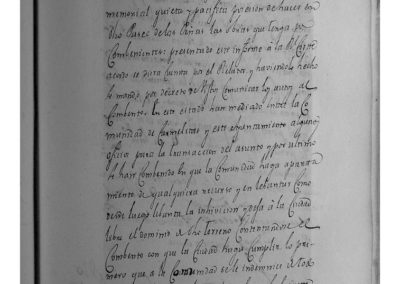 memorial quieta y pacifica posesion de hacer en
dho Paseo de las Peñas las obras que tenga por
combenientes: presentado este informe à la Rl. Cam
acordó se para punta por el Relator y haviendolo hecho
se mandó, por decreto de comunicar los autos al
Combento. En este estado han mediado entre la Co
munidad de Carmelitas y este Ayuntamiento algunos
oficios para la transaccion del asunto y por ultimo
se han combenido en que la Comunidad haga aparta
miento de qualquiera recurso y en lebantar como
desde luego lebanta la inhivicion y deja à la Ciudad
libre el dominio de dho terreno contentandose el
Combento con que la Ciudad haga cumplir lo pri
mero que à la Comunidad se le indemnice de los